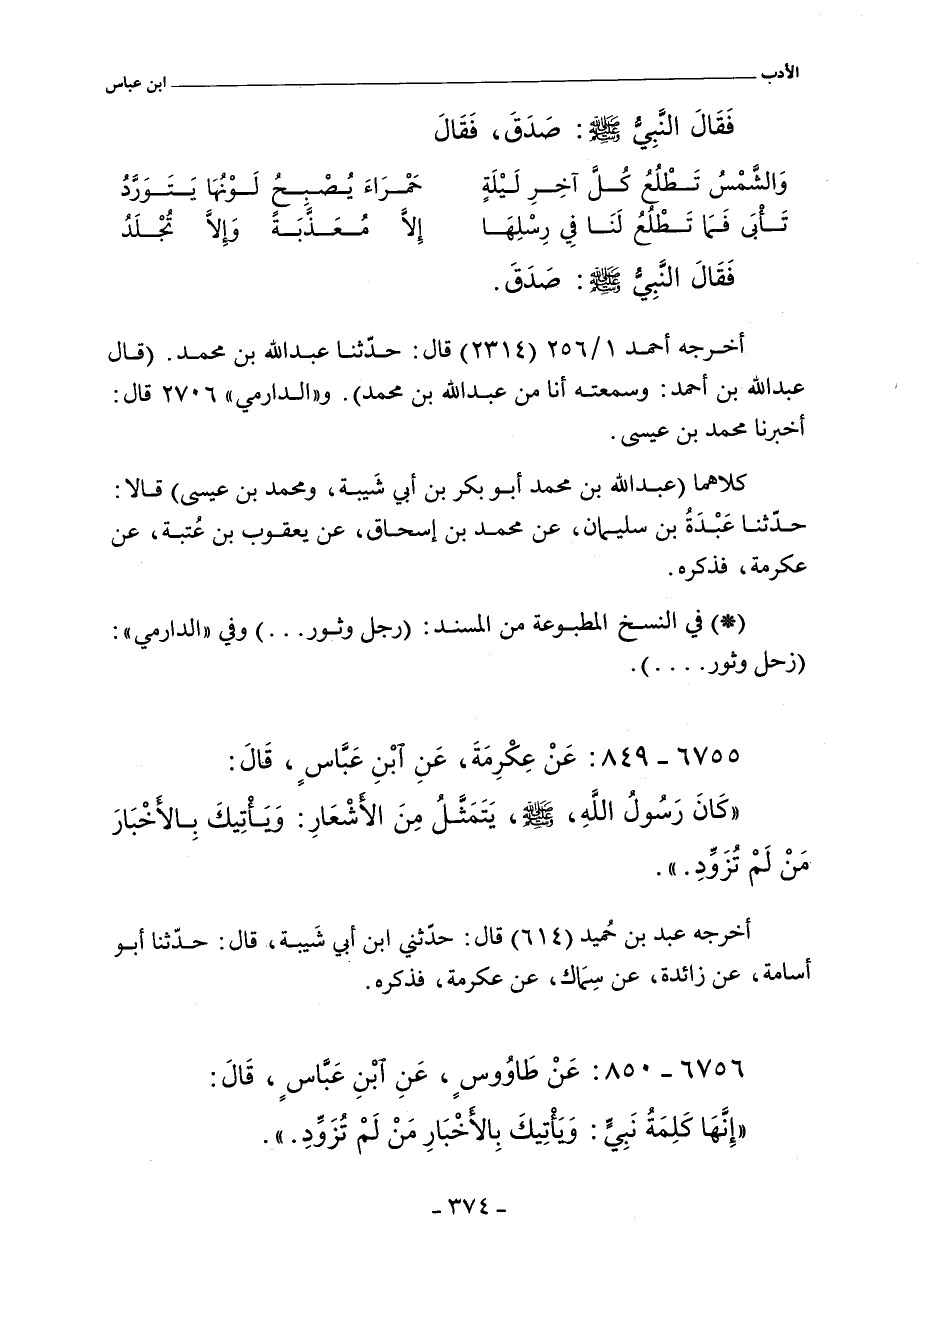 الأدب ــــــــ ابن عباس
فَقَالَ النَّبِيُّ ﷺ: صَدَقَ، فَقَالَ
وَالشَّمْسُ تَطْلُعُ كُلَّ آخِرِ لَيْلَةٍ حَمْرَاءَ يُصْبِحُ لَوْنُهَا يَتَوَرَّدُ
تَأْبَى فَمَا تَطْلُعُ لَنَا فِي رِسْلِهَا إِلاَّ مُعَذَّبَةً وَإِلاَّ تُجْلَدُ
فَقَالَ النَّبِيُّ ﷺ: صَدَقَ.
أخرجه أحمد ٢٥٦/١ (٢٣١٤) قال: حدّثنا عبدالله بن محمد. (قال
عبدالله بن أحمد: وسمعته أنا من عبدالله بن محمد). و«الدارمي» ٢٧٠٦ قال:
أخبرنا محمد بن عيسى.
كلاهما (عبدالله بن محمد أبو بكر بن أبي شَيبة، ومحمد بن عيسى) قالا:
حدّثنا عَبْدَةُ بن سليمان، عن محمد بن إسحاق، عن يعقوب بن عُتبة، عن
عكرمة، فذكره.
(*) في النسخ المطبوعة من المسند: (رجل وثور...) وفي «الدارمي»:
(زحل وثور....).
٦٧٥٥ ـ ٨٤٩: عَنْ عِكْرِمَةَ، عَنِ ٱبْنِ عَبَّاسٍ، قَالَ:
«كَانَ رَسُولُ اللَّهِ، ﷺ، يَتَمَثَّلُ مِنَ الأَشْعَارِ: وَيَأْتِيكَ بِالأَخْبَارَ
مَنْ لَمْ تُزَوِّدِ.».
أخرجه عبد بن حُميد (٦١٤) قال: حدّثني ابن أبي شَيبة، قال: حدّثنا أبو
أسامة، عن زائدة، عن سِمَاك، عن عكرمة، فذكره.
٦٧٥٦ ـ ٨٥٠: عَنْ طَاوُوسٍ، عَنِ ٱبْنِ عَبَّاسٍ، قَالَ:
«إِنَّهَا كَلِمَةُ نَبِيٍّ: وَيَأْتِيكَ بِالأَخْبَارِ مَنْ لَمْ تُزَوِّدِ.».
ـ ٣٧٤ ـ